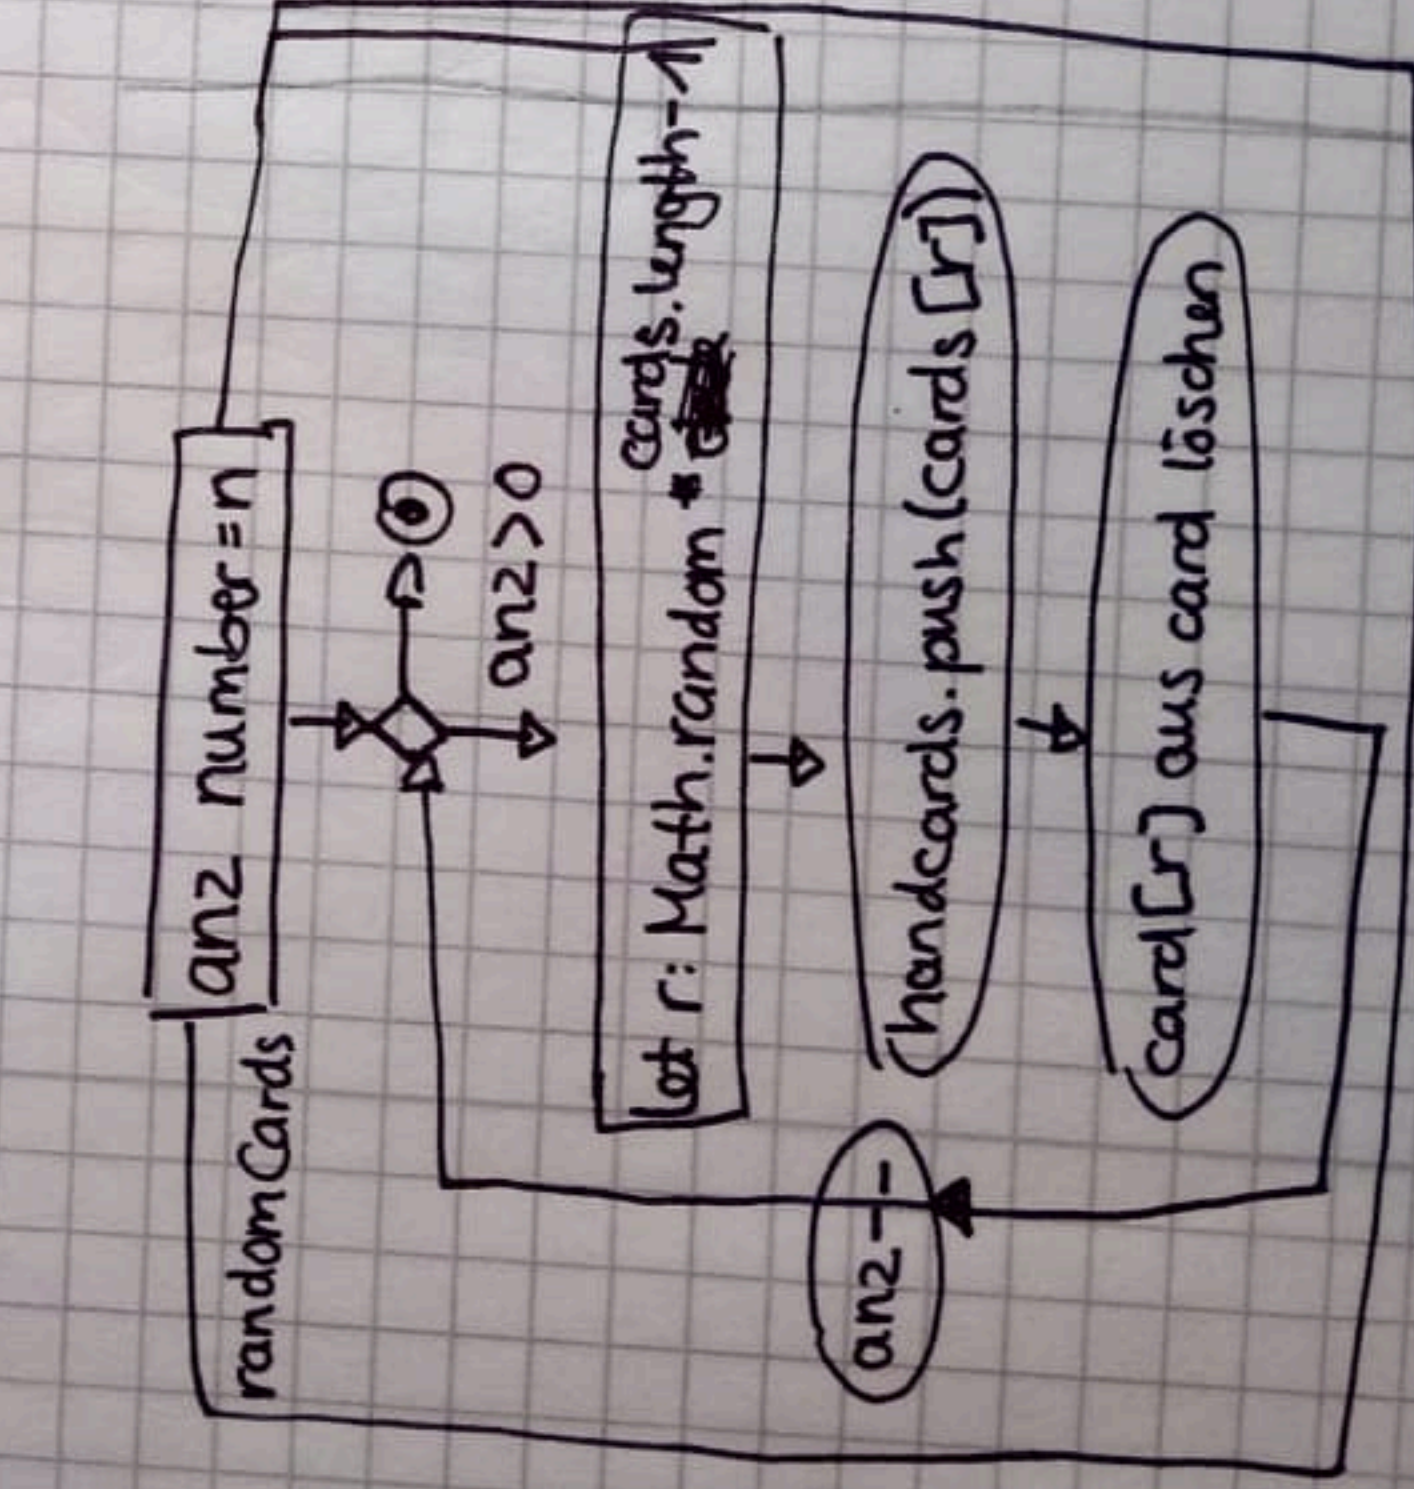 randomCards
anz number=n
anz>0
let r: Math.random * cards.length-1
handcards.push(cards[r])
card[r] aus card löschen
anz--